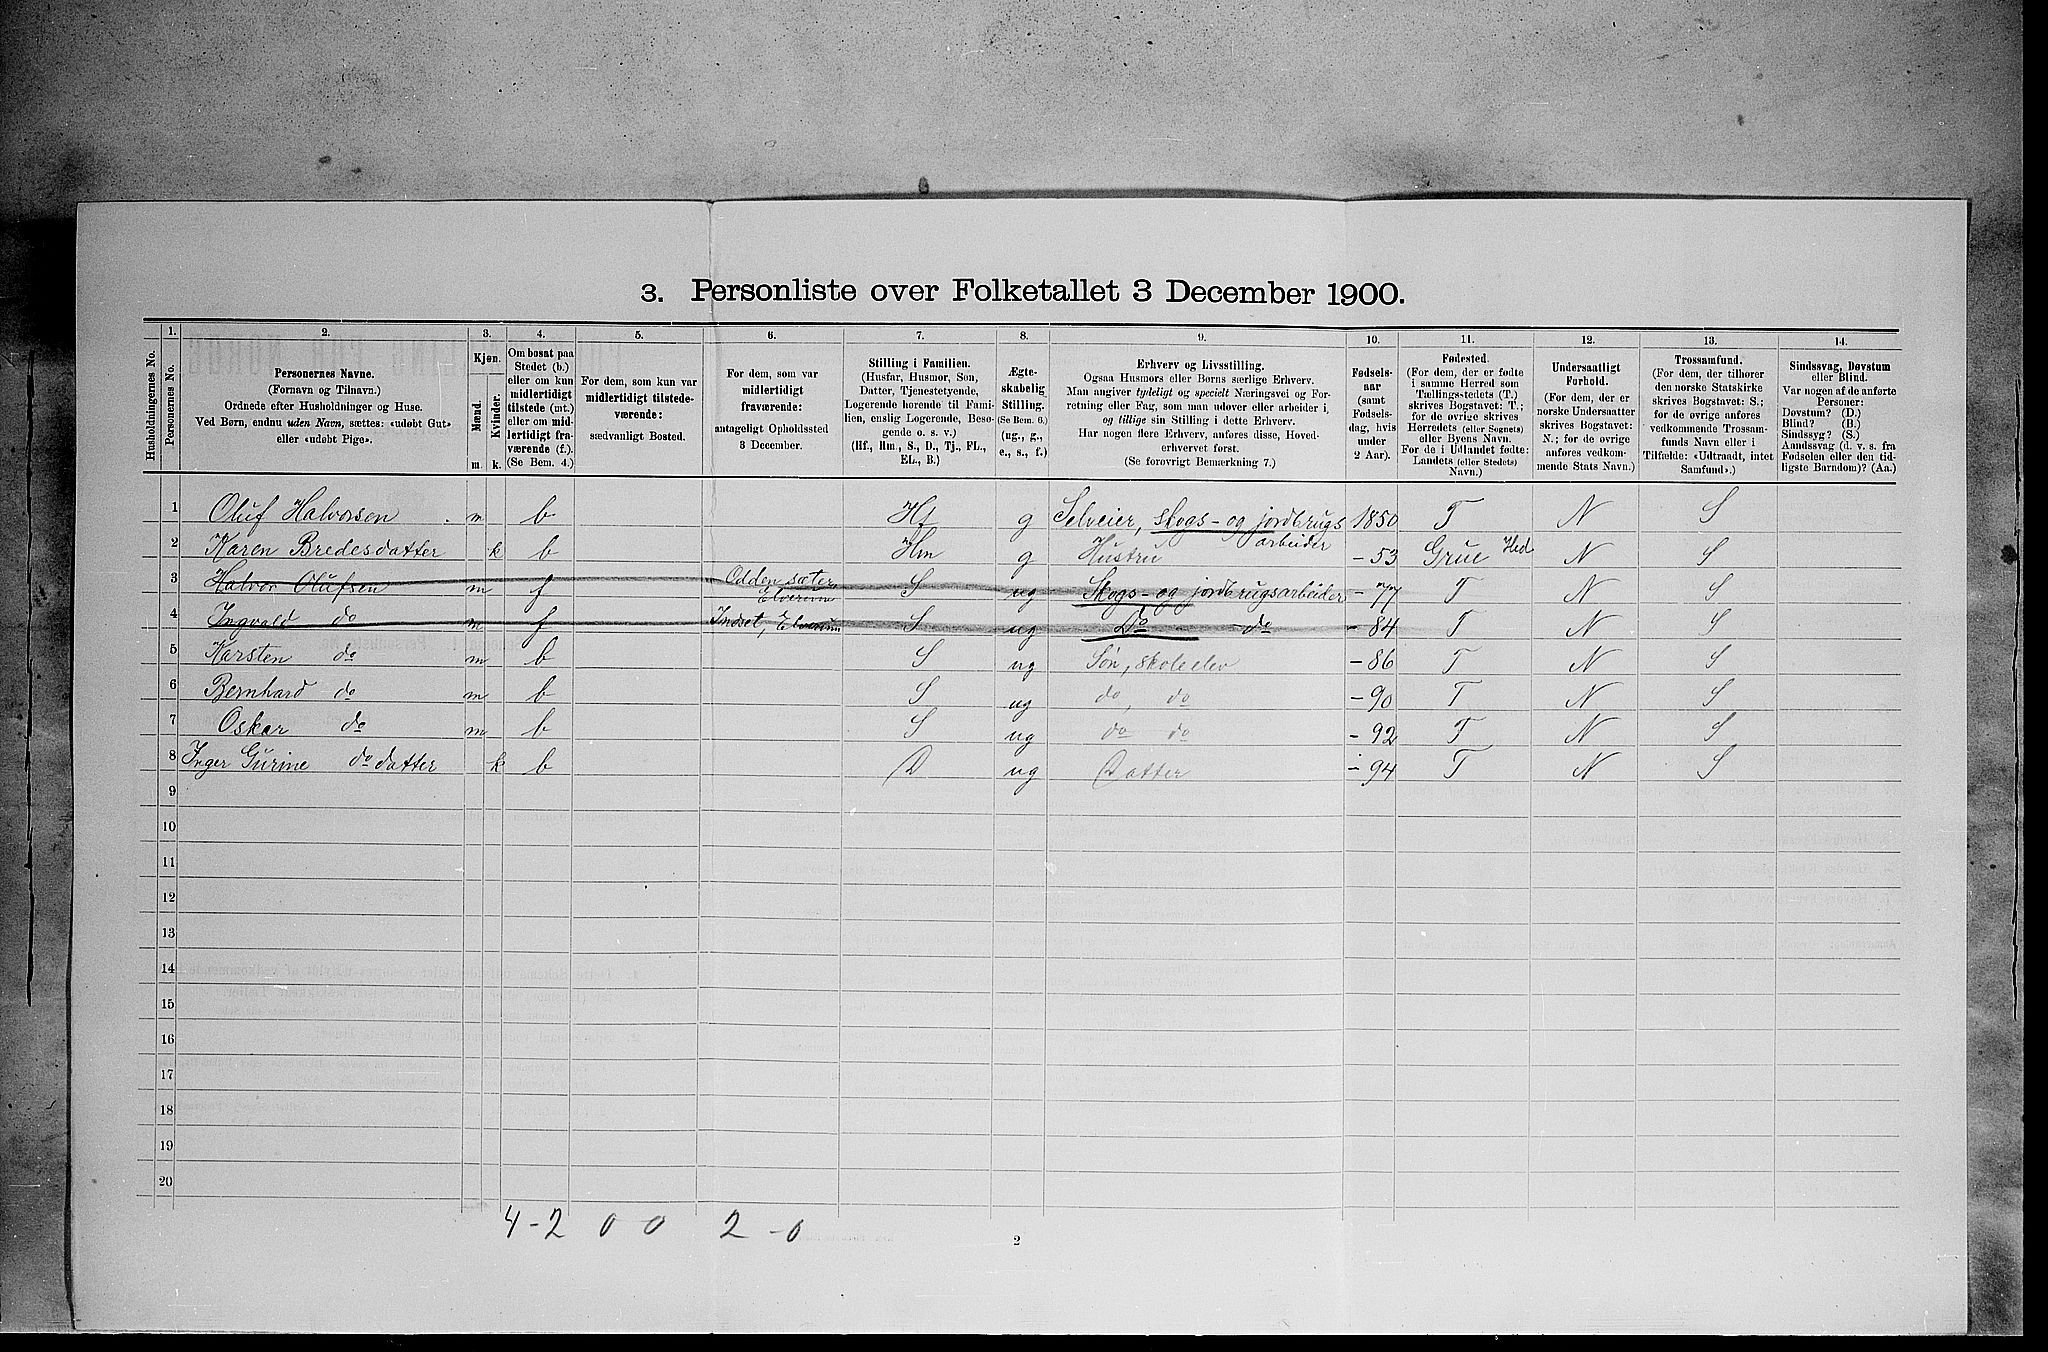 3. Personliste over Folketallet 3 December 1900.
Husholdningernes No.
1.
Personernes No.
2.
Personernes Navne.
(Fornavn og Tilnavn.)
Ordnede efter Husholdninger og Huse.
Ved Børn, endnu uden Navn, sættes: «udøbt Gut»
eller «udøbt Pige».
3.
Kjøn.
Mænd.
Kvinder.
m. k.
4.
Om bosat paa
Stedet (b.)
eller om kun
midlertidigt
tilstede (mt.)
eller om mid-
lertidigt fra-
værende (f.).
(Se Bem. 4.)
5.
For dem, som kun var
midlertidigt tilstede-
værende:
sædvanligt Bosted.
6.
For dem, som var
midlertidigt
fraværende:
antageligt Opholdssted
3 December.
7.
Stilling i Familien.
(Husfar, Husmor, Søn,
Datter, Tjenestetyende,
Logerende hørende til Fami-
lien, enslig Logerende, Besø-
gende o. s. v.)
(Hf., Hm., S., D., Tj., FL.,
EL., B.)
8.
Ægte-
skabelig
Stilling.
(Se Bem. 6.)
(ug., g.,
e., s., f.)
9.
Erhverv og Livsstilling.
Ogsaa Husmors eller Børns særlige Erhverv.
Man angiver tydeligt og specielt Næringsvei og For-
retning eller Fag, som man udover eller arbeider i,
og tillige sin Stilling i dette Erhverv.
Har nogen flere Erhverv, anføres disse, Hoved-
erhvervet først.
(Se forøvrigt Bemærkning 7.)
10.
Fødsels-
aar
(samt
Fødsels-
dag, hvis
under
2 Aar).
11.
Fødested.
(For dem, der er fødte
i samme Herred som
Tællingsstedets (T.)
skrives Bogstavet: T.;
for de øvrige skrives
Herredets (eller Sognets)
eller Byens Navn.
For de i Udlandet fødte:
Landets (eller Stedets)
Navn.)
12.
Undersaatligt
Forhold.
(For dem, der er
norske Undersaatter
skrives Bogstavet:
N.; for de øvrige
anføres vedkom-
mende Stats Navn.)
13.
Trossamfund.
(For dem, der tilhører
den norske Statskirke
skrives Bogstavet: S.;
for de øvrige anføres
vedkommende Trossam-
funds Navn eller i
Tilfælde: «Udtraadt, intet
Samfund».)
14.
Sindssvag, Døvstum
eller Blind.
Var nogen af de anførte
Personer:
Døvstum? (D.)
Blind? (B.)
Sindssyg? (S.)
Aandssvag (d. v. s. fra
Fødselen eller den tid-
ligste Barndom)? (Aa.)
1 Oluf Halvorsen m b Hf g Selveier, skogs- og jordbrugs 1850 T N S
arbeider
2 Karen Bredesdatter k b Hm g Hustru - 53 Grue Hed N S
3 Halvor Olufsen m f Odden sæter, Elverum S ug Skogs- og jordbrugsarbeider - 77 T N S
4 Ingvald do m f Indset, Elverum S ug Do do - 84 T N S
5 Karsten do m b S ug Søn, skoleelev - 86 T N S
6 Bernhard do m b S ug do, do - 90 T N S
7 Oskar do m b S ug do do - 92 T N S
8 Inger Gurine do datter k b D ug Datter - 94 T N S
9
10
11
12
13
14
15
16
17
18
19
20
4 - 2 0 0 2 - 0
2